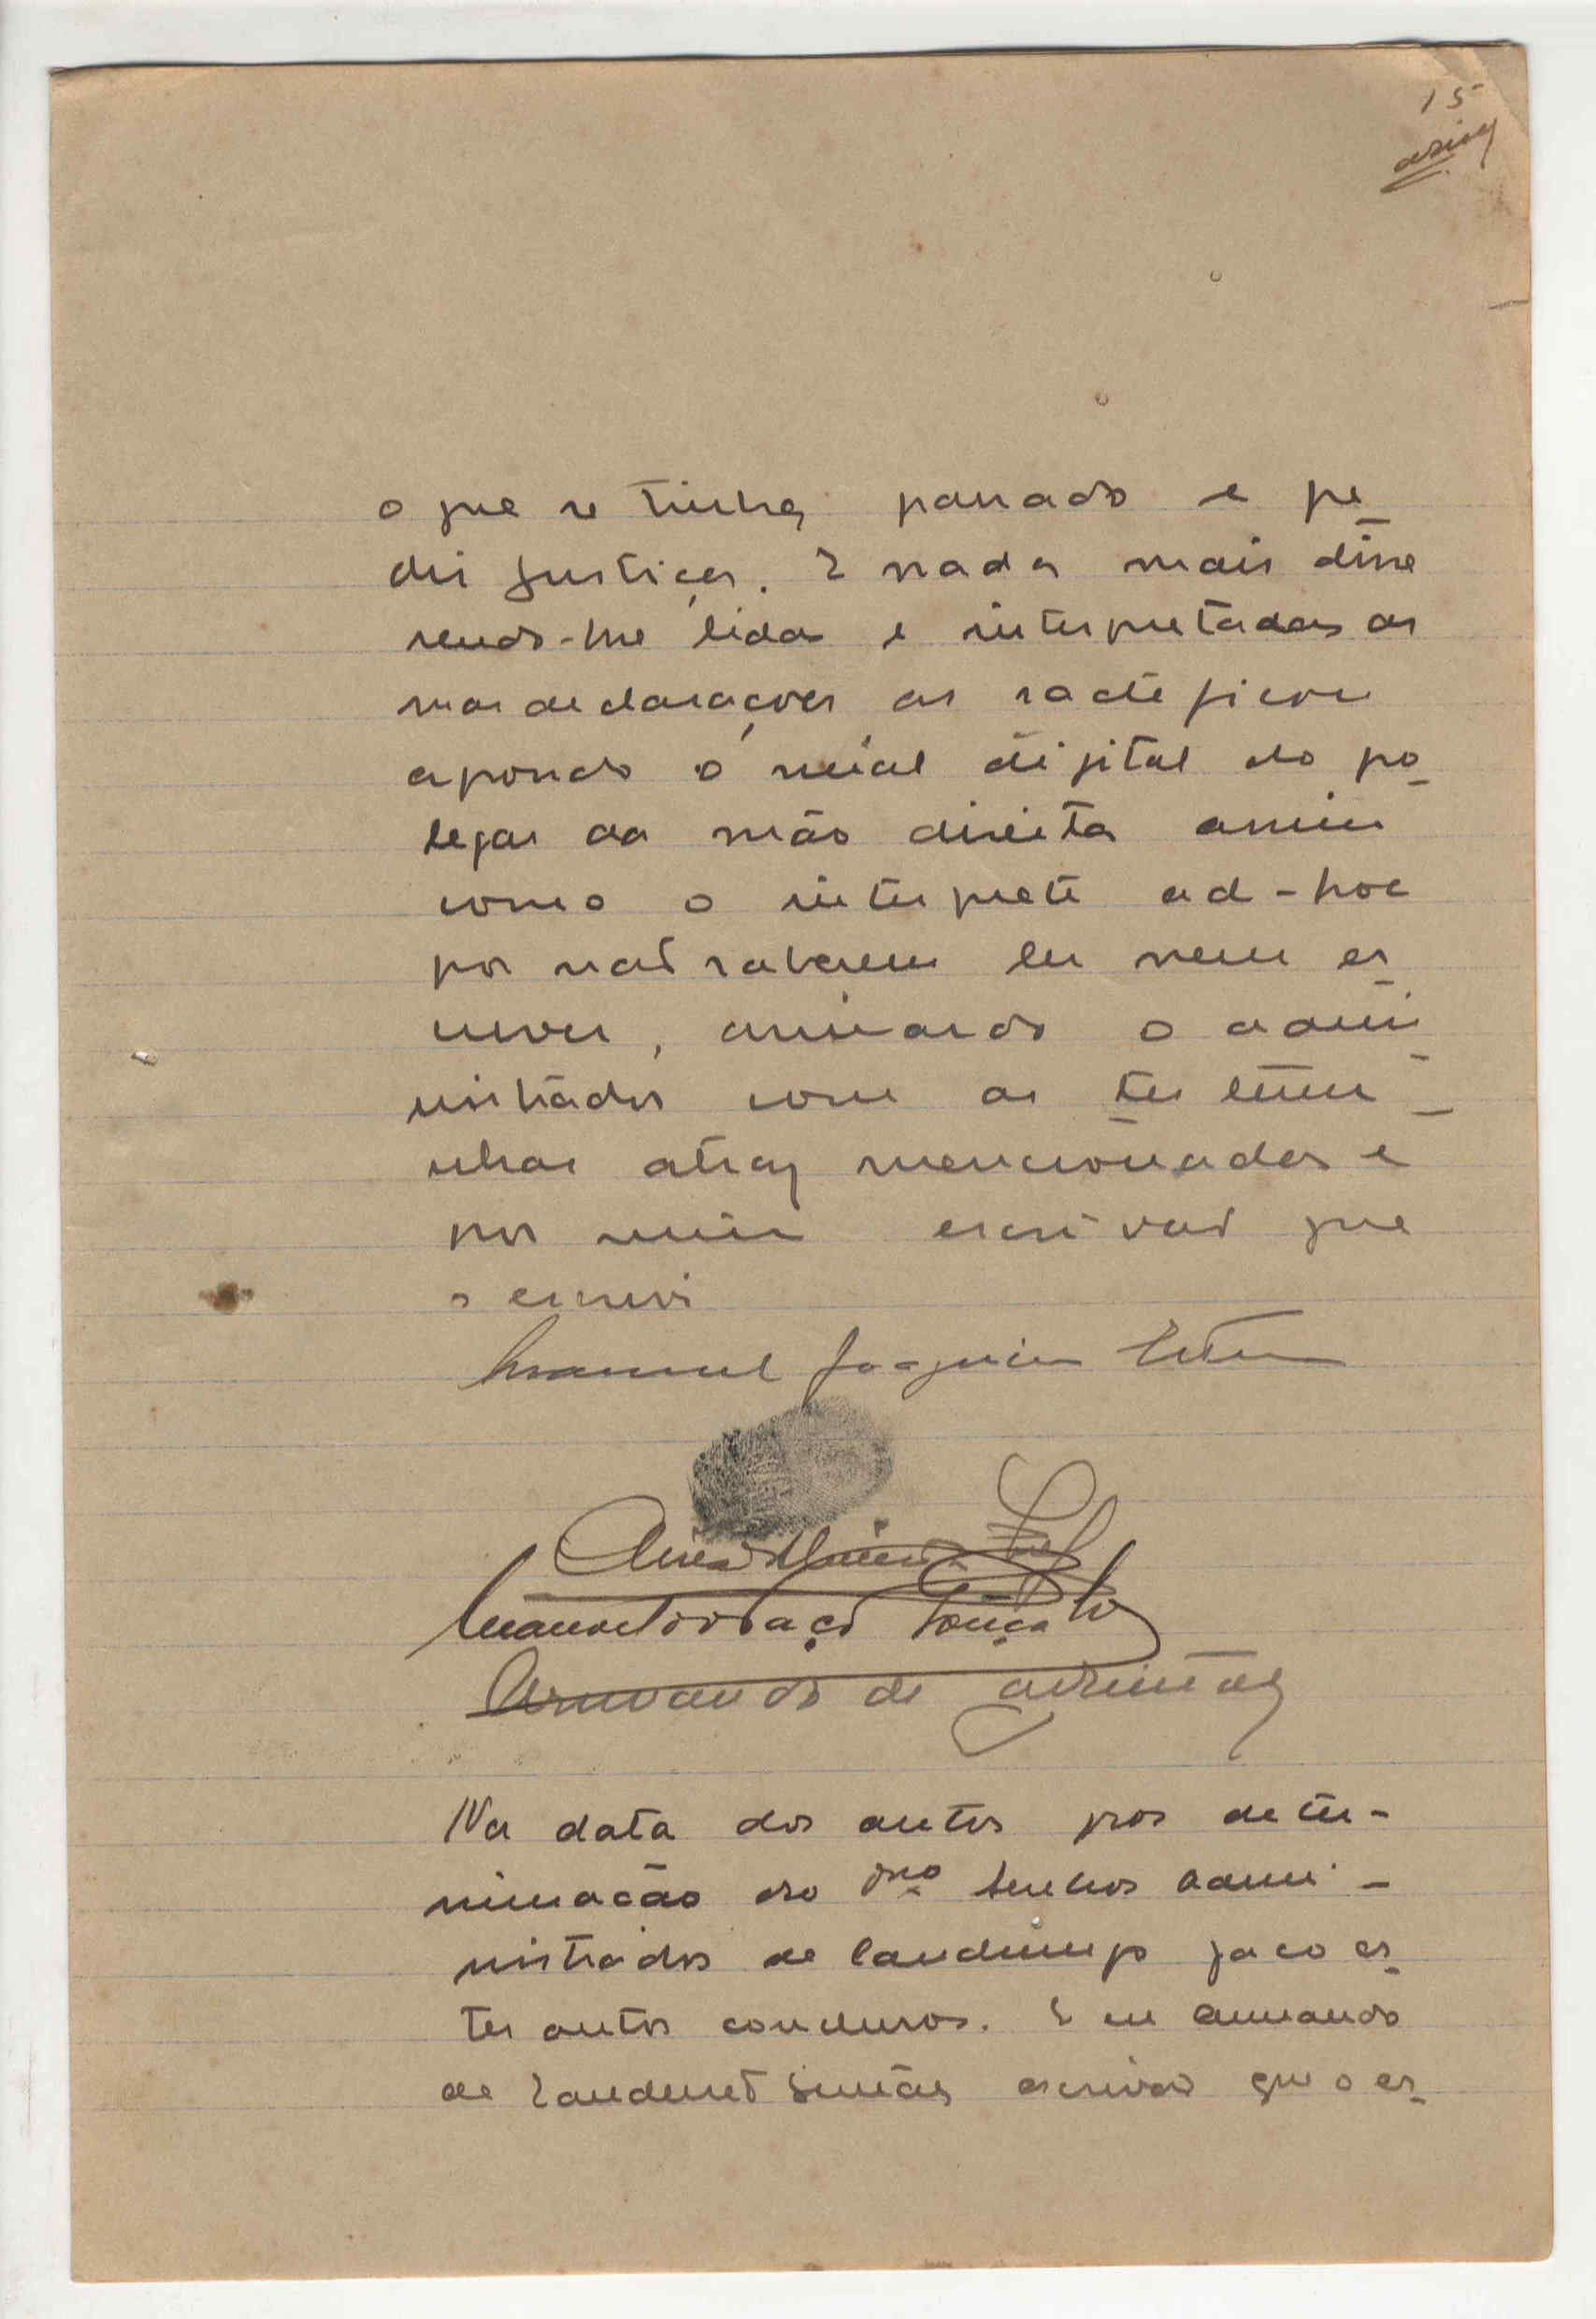 15
o que se tinha passado e pe
diu justiça. E nada mais disse
sendo-lhe lidas e interpretadas as
suas declarações as ractificou
apondo o sinal digital do po
legar da mão direita assim
como o interprete ad-hoc
por não saberem ler nem es
crever, assinando o admi
nistrador com as testemu
nhas atraz mencionadas e
por mim escrivão que
o escrevi
Manuel Joaquim
Manuel
Armando de
Na data dos autos por deter-
minação do Senhor Admi-
nistrador de Candimgo faco es
tes autos conclusos. E eu Armando
de Simões escrivão que o es